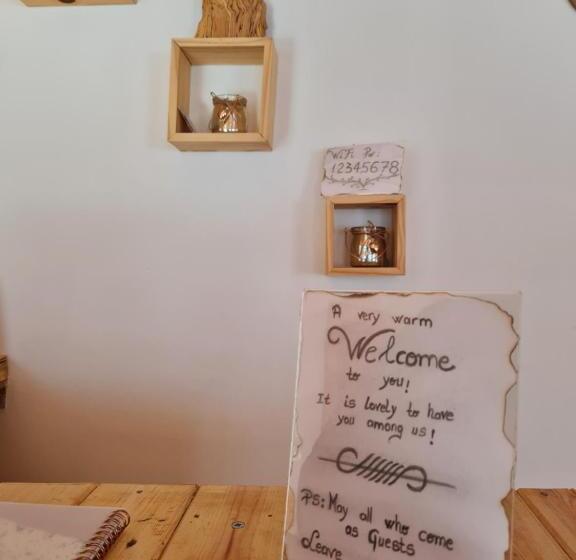 WiFi Pw:
12345678
A very warm
Welcome
to you!
It is lovely to have
you among us!
Ps: May all who come
as Guests
Leave